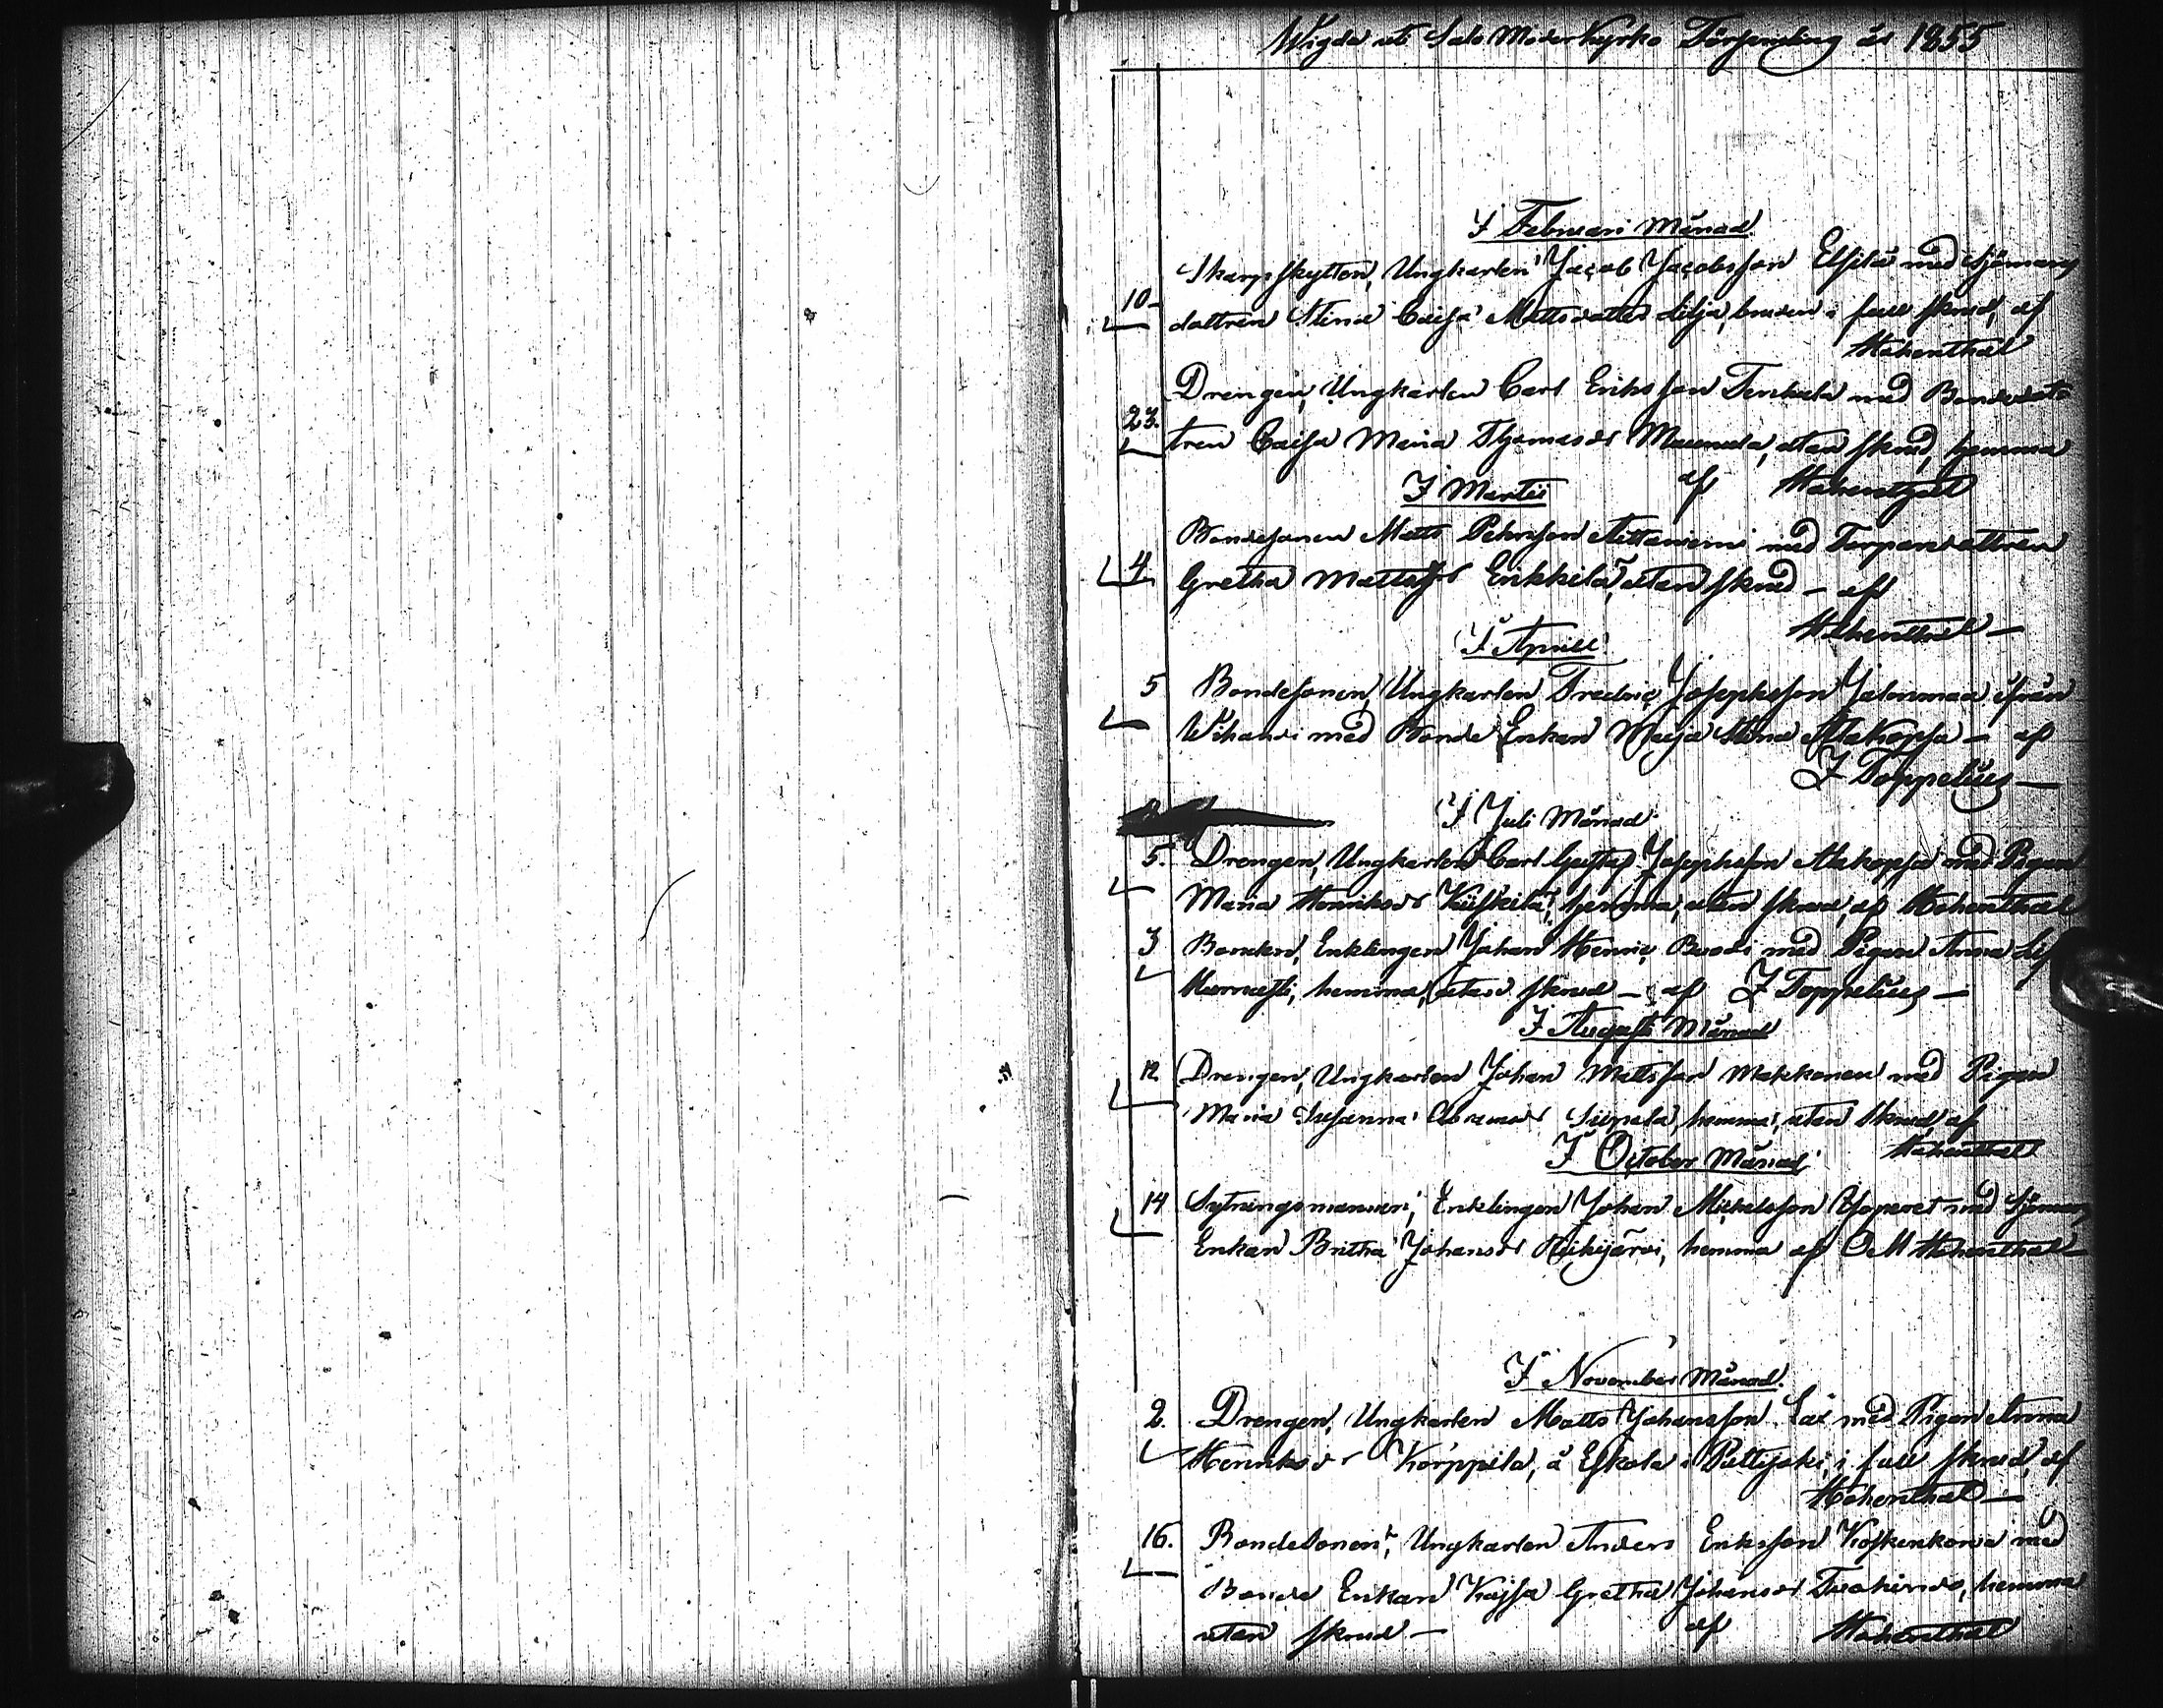 Wigda uti Salo Moderkyrko Församling år 1855
I Februari Månad
Skarpskytten, Ungkarlen Jacob Jacobsson Elfilä med Sjömans
10 dottren Stina Caisa Mattsdotter Lilja, bruden i full skrud, af
Hohenthal
Drengen, Ungkarlen Carl Eriksson Tenkula med Bondedot
23. tren Caisa Maria Thomasdr utan skrud, hemma
I Martii af Hohenthal
Bondesonen Matts Pehrsson med Torparedottren
4 Gretha Mattsdr Erikkilä, utan skrud – af
Hohenthal –
I Aprill
5 Bondesonen, Ungkarlen Fredric Josephsson Jalonmaa ifrån
Wihandi med Bonde Enkan Maija Stina Alakopsa – af
F Toppelius –
I Juli Månad
5. Drengen, Ungkarlen Carl Gustaf Josephsson Alakopsa med Pigan
Maria Henriksdr hemma, utan skrud, af Hohenthal
3 Bonden, Enklingen Johan Henric med Pigan Anna Lis
hemma, utan skrud – af F Toppelius –
I Augusti Månad
12 Drengen, Ungkarlen Johan Mattsson Makkonen med Pigan
Maria Susanna Abramsdr Siipola, hemma, utan skrud, af
I October Månad Hohenthal
14 Sytningsmannen, Enklingen Johan Mickelsson med Sjömans
Enkan Britha Johansdr hemma af C M Hohenthal
I November Månad.
2. Drengen, Ungkarlen Matts Johansson Lax med Pigan Anna
Henriksdr Korppila, å Eskola i Pattijoki, i full skrud, af
Hohenthal –
16. Bondesonen, Ungkarlen Anders Eriksson Koskenkorva med
Bonde Enkan Kajsa Gretha Johansdr hemma
utan skrud – af Hohenthal